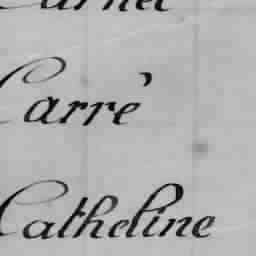 Carré
Catheline